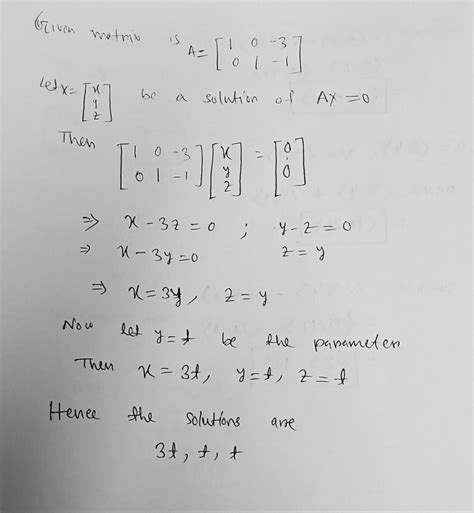 Given matrix is A = [1 0 -3; 0 1 -1]
Let X = [x; y; z] be a solution of AX = 0
Then
[1 0 -3; 0 1 -1] [x; y; z] = [0; 0]
⇒ x - 3z = 0 ; y - z = 0
⇒ x - 3y = 0 z = y
⇒ x = 3y, z = y
Now let y = t be the parameter
Then x = 3t, y = t, z = t
Hence the solutions are
3t, t, t